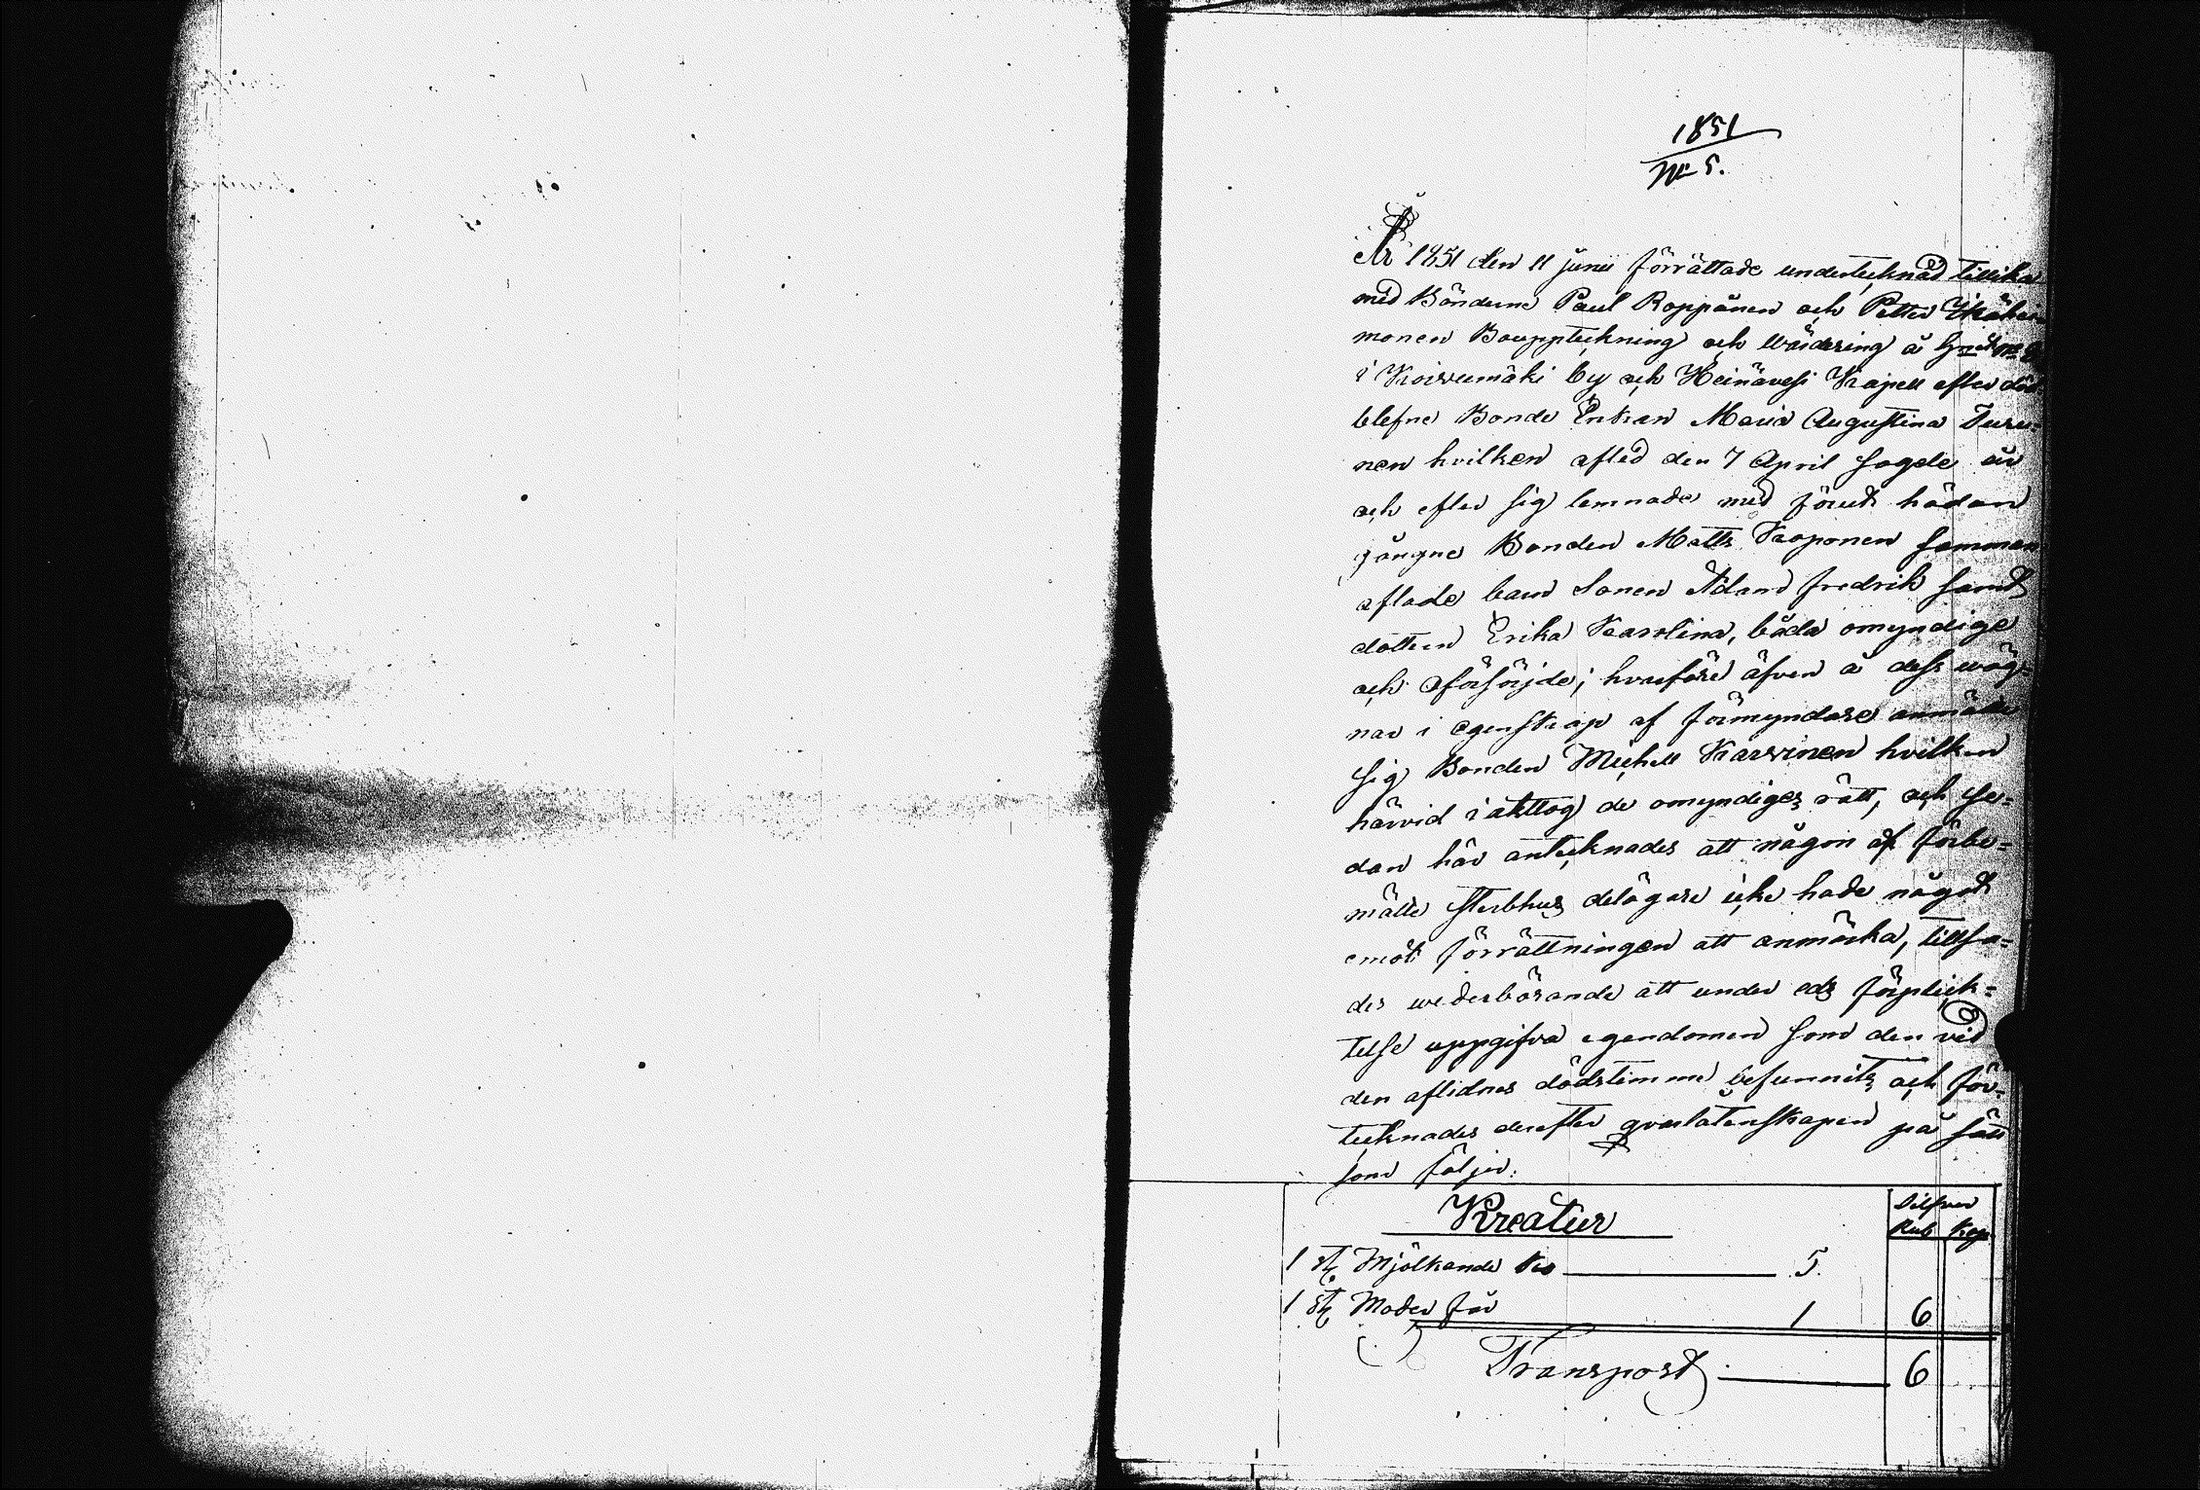 1851
N<u>o</u> 5.
År 1851 den 11 Junii förrättade undertecknad tillika
med Bönderne Paul Roppånen och Petter Ikähei-
monen Bouppteckning och Wärdering å
i Koivumäki by och Heinävesi Kapell efter död
blefne Bonde Enkan Maria Augustina Turu-
nen hvilken afled den 7 April sagde år
och efter sig lemnade med förut hädan
gångne Bonden Matts Kaponen samman
aflade barn Sonen Adam Fredrik samt
dottern Erika Karolina, båda omyndige
och oförsörjde; hvarföre äfven å dess wäg-
nar i egenskap af förmyndare anmälte
sig Bonden Michell Karvinen hvilken
härvid iakttog de omyndiges rätt, och se-
dan här antecknades att någon af förbe-
mälte sterbhus delägare icke hade något
emot förrättningen att anmärka, tillsa-
des wederbörande att under eds förplick-
telse uppgifva egendomen som den vid
den aflidnes dödstimme befunnits och för-
tecknades derefter qvarlåtenskapen på sätt
som följer:
Kreatur
Silfver
Rub Kop
1 st. Mjölkande Ko 5.
1 st. Moder får 1 6
Transport 6